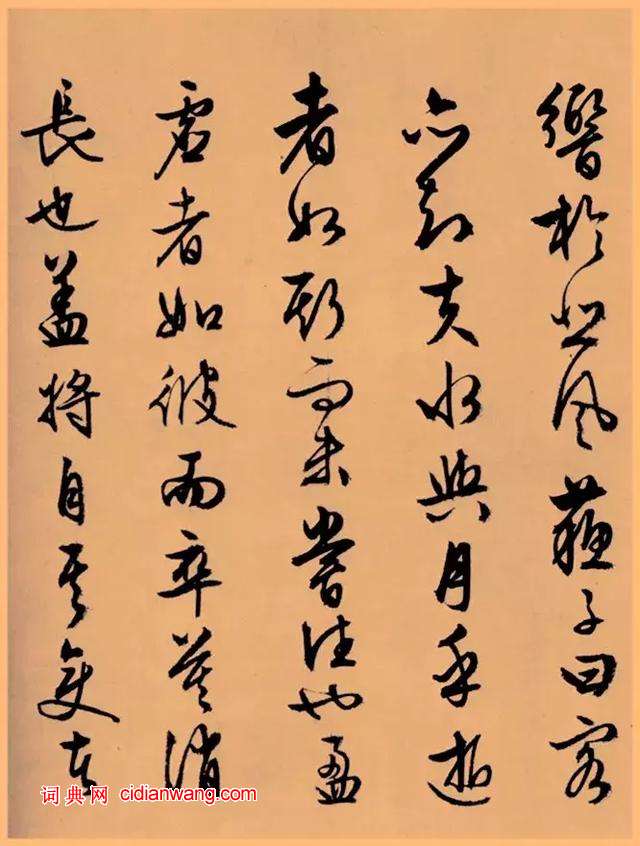 響於悲風蘇子曰客
亦知夫水與月乎逝
者如斯而未嘗往也盈
虛者如彼而卒莫消
長也盖將自其變者
词典网 cidianwang.com